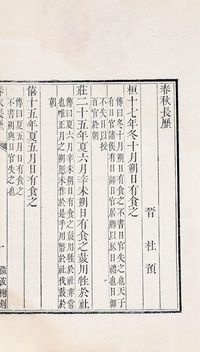 春秋長歷
晉 杜預
桓十七年冬十月朔日有食之
傳曰冬十月朔日有食之不書日官失之也天子
有日官諸侯有日御日官居卿以厎日禮也日御
不失日以授
百官於朝
莊二十五年夏六月辛未朔日有食之鼓用牲於社
傳曰夏六月辛未朔日有食之鼓用牲於社非常
也唯正月之朔慝未作日有食之於是乎用幣於社伐鼓於
朝
僖十五年夏五月日有食之
傳曰夏五月日有食之
不書朔與日官失之也
一
微波榭刻